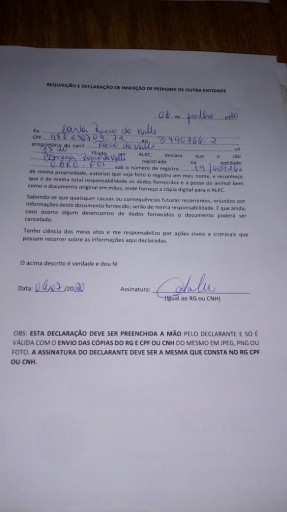 REQUISIÇÃO E DECLARAÇÃO DE INSERÇÃO DE PEDIGREE DE OUTRA ENTIDADE
06 de julho
Eu do Valle
CPF RG
proprietário do canil nº
filiado ALEC, declara que o cão
registrado na entidade
CBKC FCI sob o número de registro
de minha propriedade, autorizo que seja feito o registro em meu nome, e reconheço
que é de minha total responsabilidade os dados fornecidos e a posse do animal bem
como o documento original em mãos, onde forneço a cópia digital para o ALEC.
Sabendo se que quaisquer causas ou consequências futuras recorrentes, oriundos por
informações deste documento fornecido, serão de minha responsabilidade. E que ainda,
caso ocorra algum desencontro de dados fornecidos o documento poderá ser
cancelado.
Tenho ciência dos meus atos e me responsabilizo por ações cíveis e criminais que
possam recorrer sobre as informações aqui declaradas.
O acima descrito é verdade e dou fé
Data: Assinatura:
(Igual ao RG ou CNH)
OBS: ESTA DECLARAÇÃO DEVE SER PREENCHIDA A MÃO PELO DECLARANTE E SÓ É
VÁLIDA COM O ENVIO DAS CÓPIAS DO RG E CPF OU CNH DO MESMO EM JPEG, PNG OU
FOTO. A ASSINATURA DO DECLARANTE DEVE SER A MESMA QUE CONSTA NO RG CPF
OU CNH.